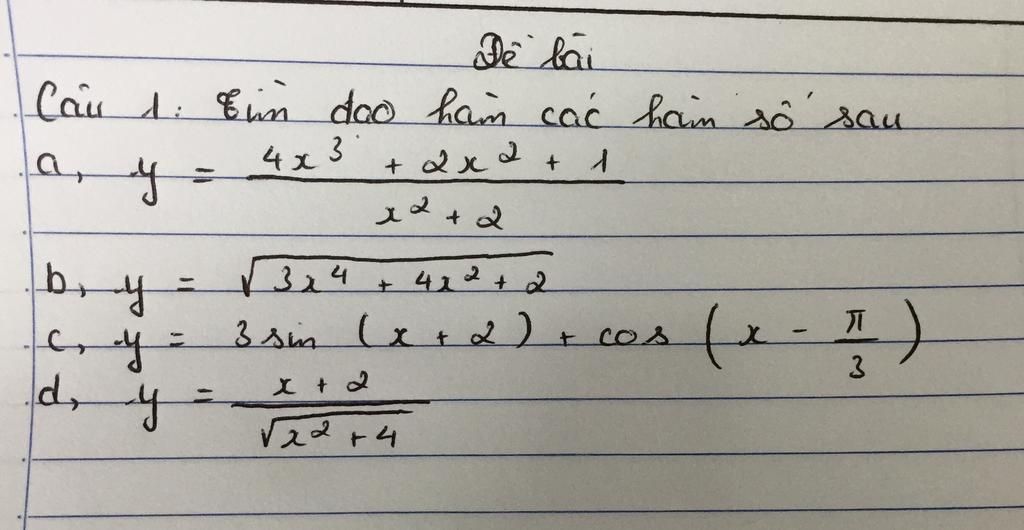 Đề bài
Câu 1: Tìm đạo hàm các hàm số sau
a, y = \frac{4x^3 + 2x^2 + 1}{x^2 + 2}
b, y = \sqrt{3x^4 + 4x^2 + 2}
c, y = 3 sin (x + 2) + cos (x - \frac{π}{3})
d, y = \frac{x + 2}{\sqrt{x^2 + 4}}